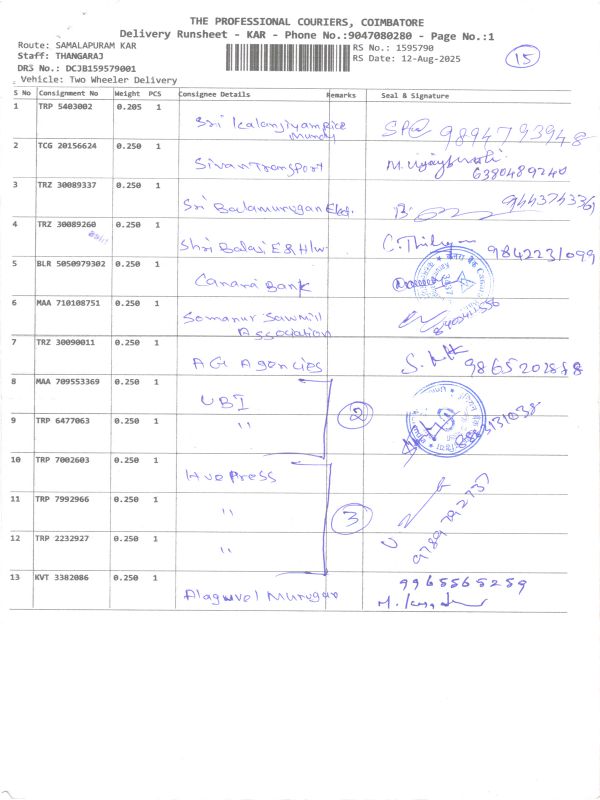 THE PROFESSIONAL COURIERS, COIMBATORE
Delivery Runsheet - KAR - Phone No.:9047080280 - Page No.:1
Route: SAMALAPURAM KAR
Staff: THANGARAJ
DRS No.: DCJB159579001
Vehicle: Two Wheeler Delivery
RS No.: 1595790
RS Date: 12-Aug-2025
15
S No Consignment No Weight PCS Consignee Details Remarks Seal & Signature
1 TRP 5403002 0.205 1 Sri Kalanjiyam Rice Mundy 9894793948
2 TCG 20156624 0.250 1 Sivan Transport 6380489240
3 TRZ 30089337 0.250 1 Sri Balamurugan Elec.
4 TRZ 30089260 0.250 1 Shri Balaji E&H/w 9842231099
5 BLR 5050979302 0.250 1 Canara Bank
6 MAA 710108751 0.250 1 Somanur Sawmill Association
7 TRZ 30090011 0.250 1 AG Agencies 9865202888
8 MAA 709553369 0.250 1 UBI
9 TRP 6477063 0.250 1 " 2 8883131038
10 TRP 7002603 0.250 1 Hve Press
11 TRP 7992966 0.250 1 " 3 9789792737
12 TRP 2232927 0.250 1 "
13 KVT 3382086 0.250 1 Alaguvel Murugan 9965565259